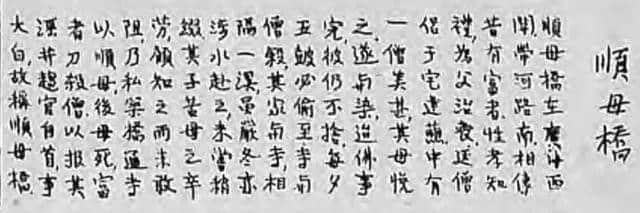 順母橋
順母橋在廣西
関帶河路南相傳
昔有富者性孝知
禮為父治喪延僧
侶于宅建醮中有
一僧美甚其母悅
之遂与染迨佛事
完彼仍不捨每夕
五皷必偷至寺与
僧歡其家与寺相
隔一溪虽嚴冬亦
涉水赴之未嘗稍
輟其子苦母之辛
勞頗知之而未敢
阻乃私築橋通寺
以順母後母死富
者刀殺僧以報其
并趨官自首事
大白故稱順母橋